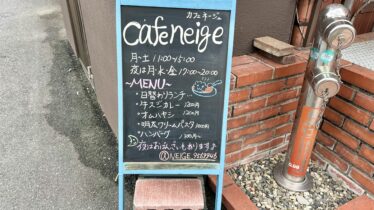 カフェネージュ
Cafe neige
月〜土 11:00〜15:00
夜は月・水・金 17:00〜20:00
〜MENU〜
・日替わりランチ…
・牛スジカレー 1200円
・オムハヤシ 1200円
・明太クリームパスタ 1000円
・ハンバーグ 1100円〜
夜はおばんざいもあります♪
NEIGE_9883946